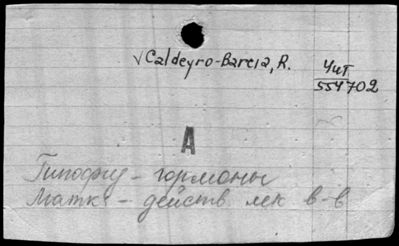 √Caldeyro-Barcia, R.
Чит
554702
А
Гипофиз - гормоны
Матка - действ. лек в-в